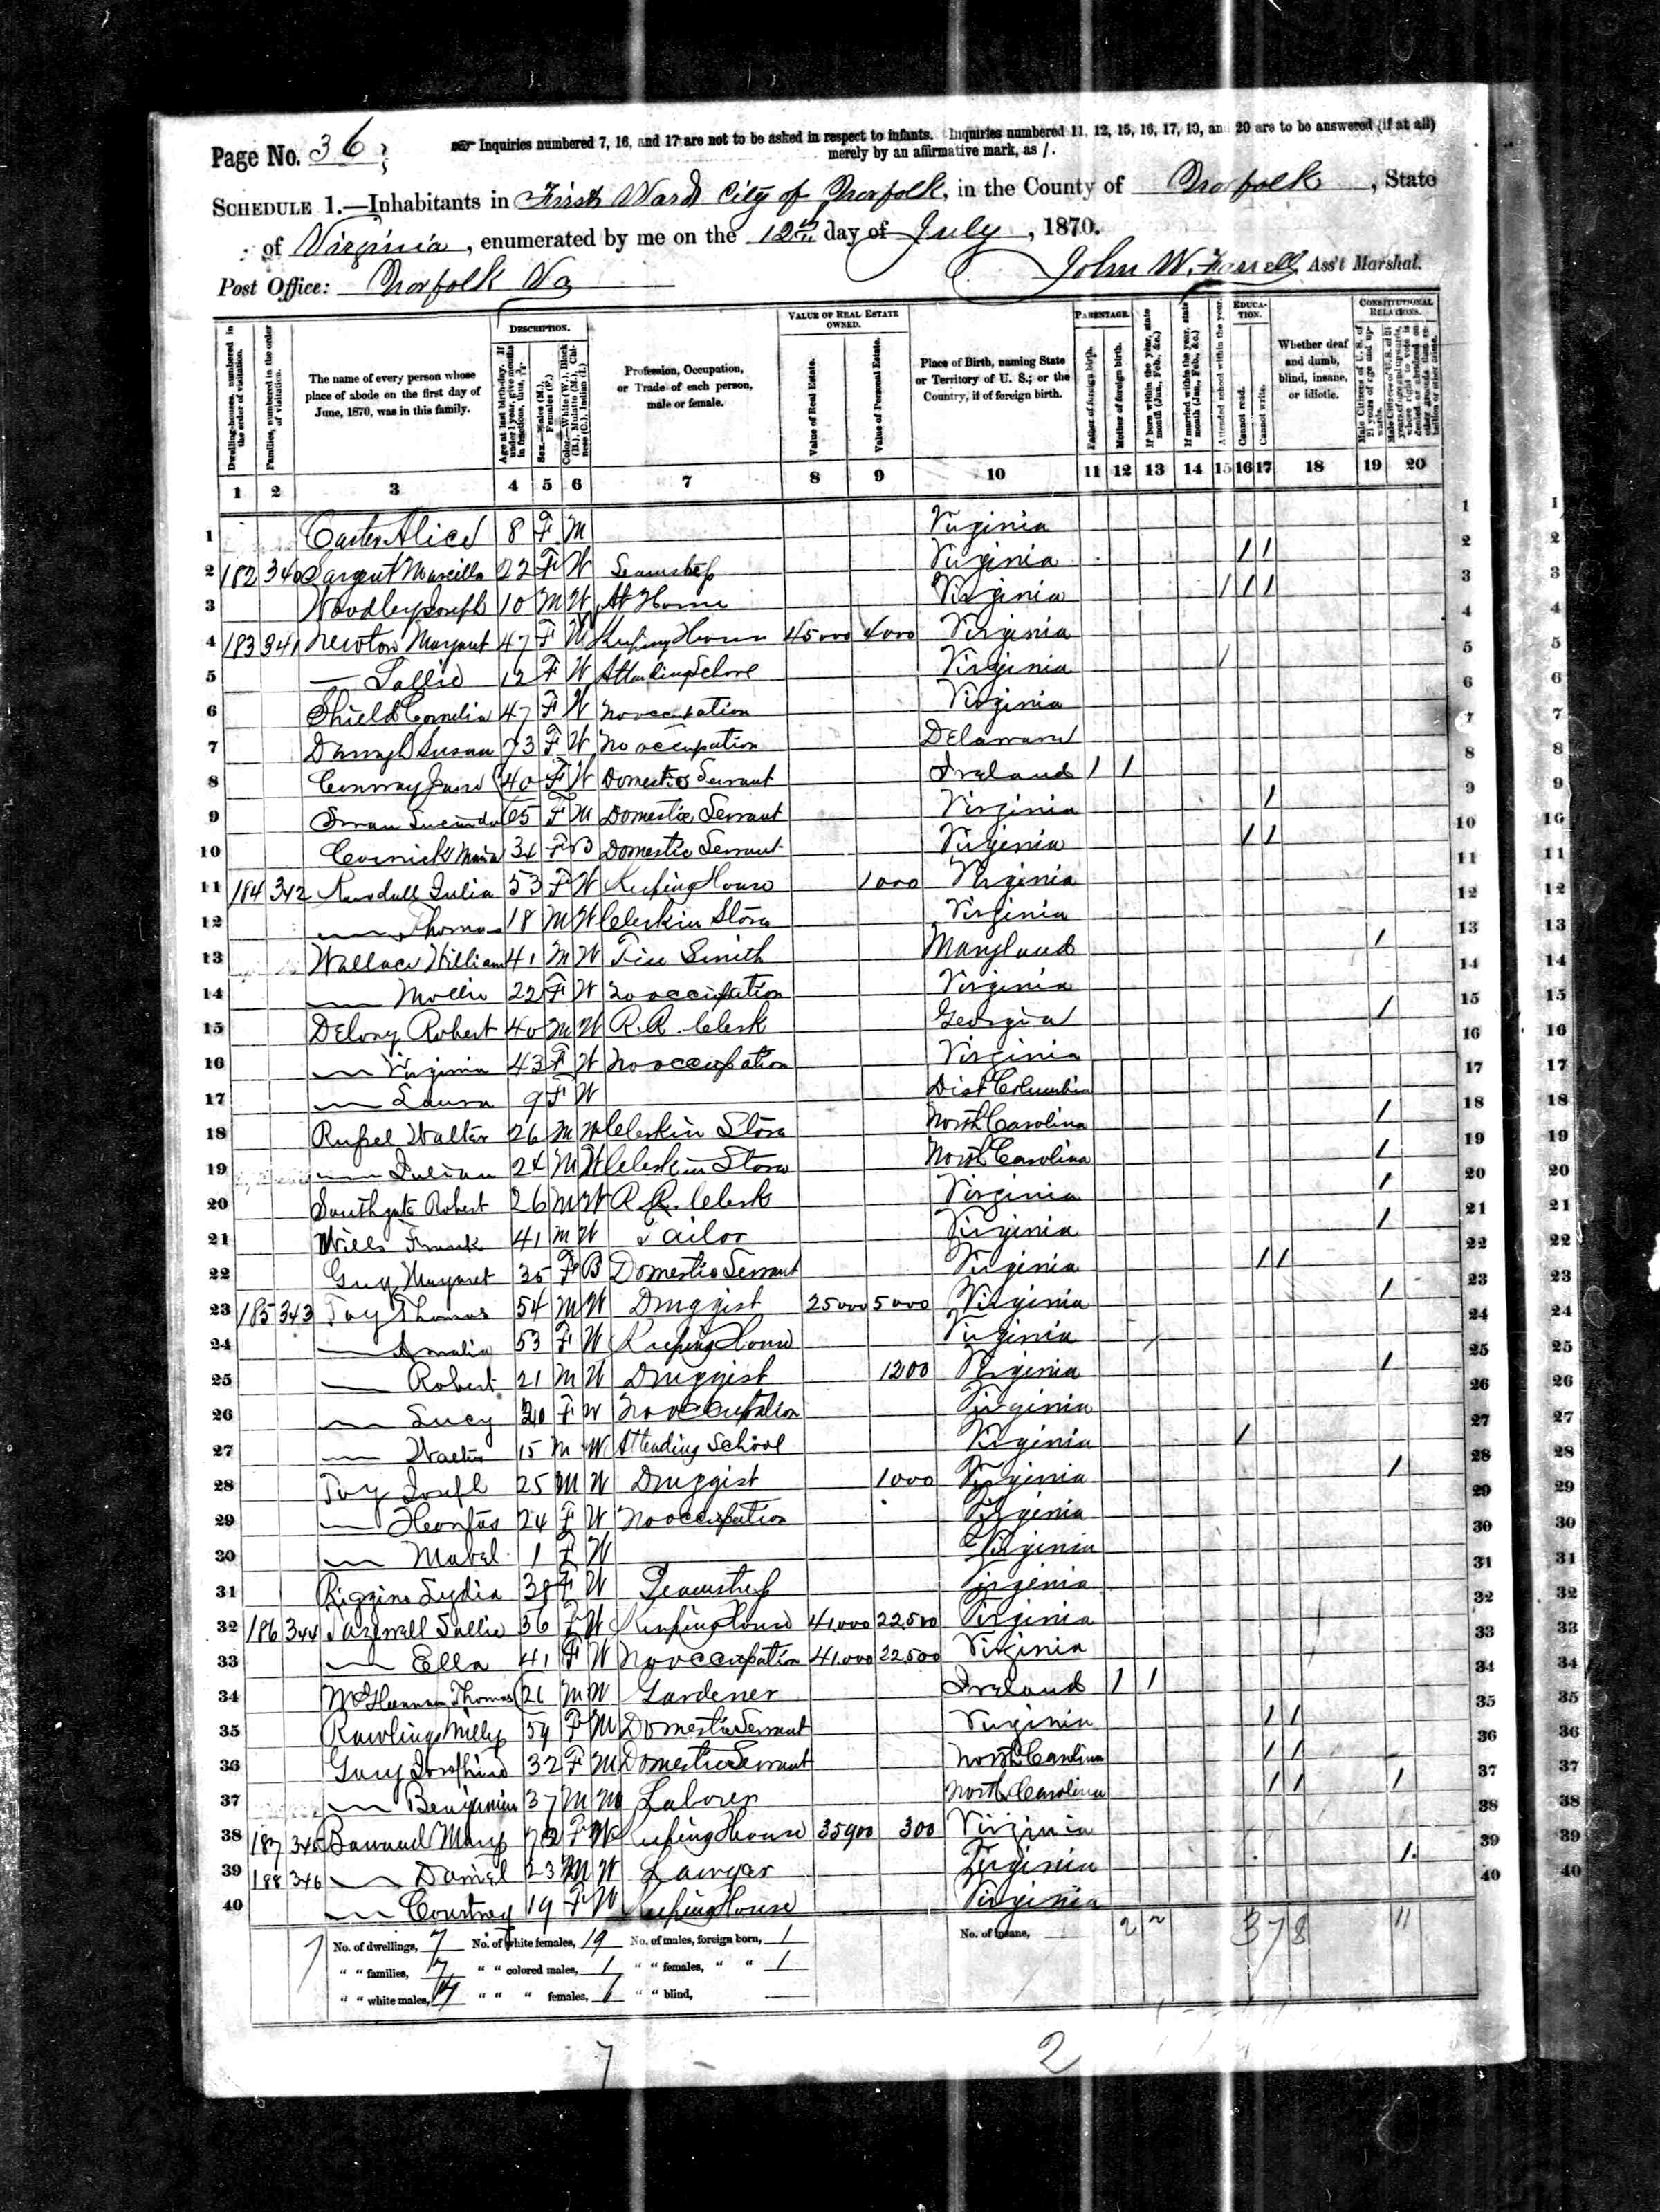 Page No. 36
Inquiries numbered 7, 16, and 17 are not to be asked in respect to infants. Inquiries numbered 11, 12, 15, 16, 17, 19, and 20 are to be answered (if at all)
merely by an affirmative mark, as /.
SCHEDULE 1.—Inhabitants in First Ward City of Norfolk, in the County of Norfolk, State
of Virginia, enumerated by me on the 12th day of July, 1870.
Post Office: Norfolk Va
John W. Ass't Marshal.
Dwelling-houses, numbered in the order of visitation.
Families, numbered in the order of visitation.
The name of every person whose place of abode on the first day of June, 1870, was in this family.
DESCRIPTION.
Age at last birth-day. If under 1 year, give months in fraction, thus,
Sex.—Males (M.), Females (F.)
Color.—White (W.), Black (B.), Mulatto (M.), Chinese (C.), Indian (I.)
Profession, Occupation, or Trade of each person, male or female.
VALUE OF REAL ESTATE OWNED.
Value of Real Estate.
Value of Personal Estate.
Place of Birth, naming State or Territory of U. S.; or the Country, if of foreign birth.
PARENTAGE.
Father of foreign birth.
Mother of foreign birth.
If born within the year, state month (Jan., Feb., &c.)
If married within the year, state month (Jan., Feb., &c.)
Attended school within the year.
EDUCATION.
Cannot read.
Cannot write.
Whether deaf and dumb, blind, insane, or idiotic.
CONSTITUTIONAL RELATIONS.
Male Citizens of U. S. of 21 years of age and upwards.
1 2 3 4 5 6 7 8 9 10 11 12 13 14 15 16 17 18 19 20
1 Carter Alice 8 F M Virginia 1
2 182 340 Sargent Marcilla 22 F W Seamstress Virginia / / 2
3 Woodley Joseph 10 M W At Home Virginia / / / 3
4 183 341 Newton Margaret 47 F W Keeping House 45000 4000 Virginia 4
5 — Sallie 12 F W Attending School Virginia / 5
6 Shield Cornelia 47 F W No occupation Virginia 6
7 Susan 73 F W No occupation Delaware 7
8 Conway Jane 40 F W Domestic Servant Ireland / / 8
9 Swan Lucinda 65 F M Domestic Servant Virginia / 9
10 Cornick Maria 34 F B Domestic Servant Virginia / / 10
11 184 342 Randall Julia 53 F W Keeping House 1000 Virginia 11
12 — Thomas 18 M W Clerk in Store Virginia 12
13 Wallace William 41 M W Tin Smith Maryland / 13
14 — Mollie 22 F W No occupation Virginia 14
15 DeLony Robert 40 M W R.R. Clerk Georgia / 15
16 — Virginia 43 F W No occupation Virginia 16
17 — Laura 9 F W Dist Columbia 17
18 Russel Walter 26 M W Clerk in Store North Carolina / 18
19 — Julian 24 M W Clerk in Store North Carolina / 19
20 Southgate Robert 26 M W R.R. Clerk Virginia / 20
21 Wills Frank 41 M W Tailor Virginia / 21
22 Guy Margaret 35 F B Domestic Servant Virginia / / 22
23 185 343 Toy Thomas 54 M W Druggist 25000 5000 Virginia / 23
24 — Amalia 53 F W Keeping House Virginia 24
25 — Robert 21 M W Druggist 1200 Virginia / 25
26 — Lucy 20 F W No occupation Virginia 26
27 — Walter 15 M W Attending School Virginia / 27
28 Toy Joseph 25 M W Druggist 1000 Virginia / 28
29 — 24 F W No occupation Virginia 29
30 — Mabel 1 F W Virginia 30
31 Riggins Lydia 38 F W Seamstress Virginia 31
32 186 344 Tazewell Sallie 36 F W Keeping House 41,000 22,500 Virginia 32
33 — Ella 41 F W No occupation 41,000 22,500 Virginia 33
34 Thomas 26 M W Gardener Ireland / / 34
35 Rawlings Milly 59 F M Domestic Servant Virginia / / 35
36 Gary Josephine 32 F M Domestic Servant North Carolina / / 36
37 — Benjamin 37 M M Laborer North Carolina / / / 37
38 187 345 Barraud Mary 72 F W Keeping House 35900 300 Virginia 38
39 188 346 — Daniel 23 M W Lawyer Virginia / 39
40 — Courtney 19 F W Keeping House Virginia 40
No. of dwellings, 7 No. of white females, 19 No. of males, foreign born, 1 No. of insane, 2 2 3 7 8 11
" " families, 7 " " colored males, 1 " " females, " " 1
" " white males, 14 " " " females, 6 " " blind,
7 2